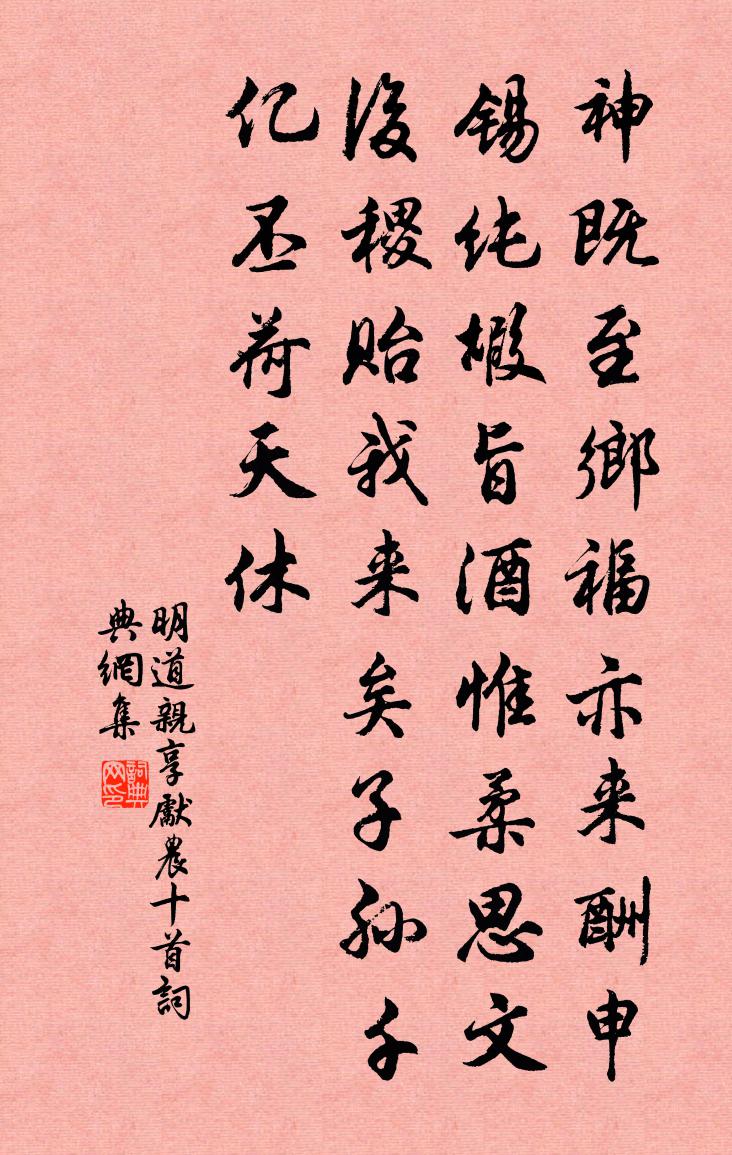 神既至鄉福亦来酬申
锡纯嘏旨酒惟柔思文
後稷贻我来矣子孙千
亿丕荷天休
明道親享獻農十首詞
典網集
詞典網印